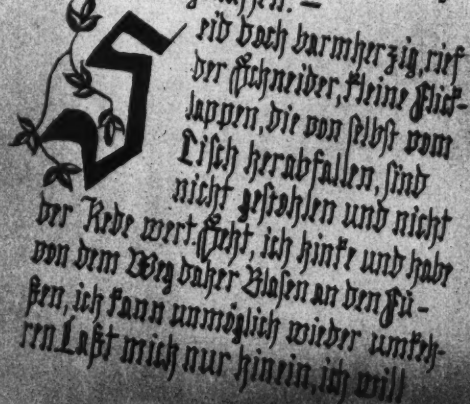 Seid doch barmherzig, rief
der Schneider, kleine Flick-
lappen, die von selbst vom
Tisch herabfallen, sind
nicht gestohlen und nicht
der Rede wert. Seht, ich hinke und habe
von dem Weg daher Blasen an den Fü-
ßen, ich kann unmöglich wieder umkeh-
ren. Laßt mich nur hinein, ich will